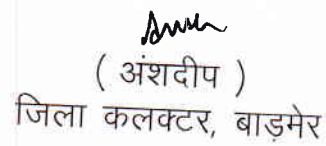 ( अंशदीप )
जिला कलक्टर, बाड़मेर